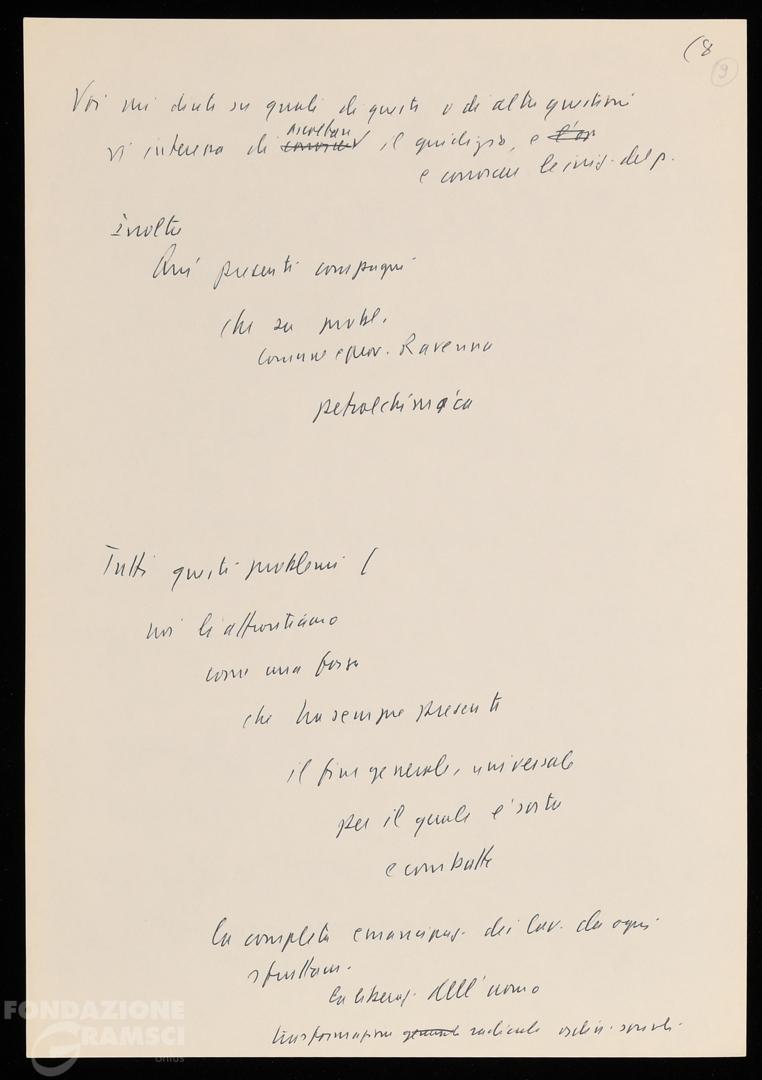 (8
9
Voi mi direte su quali di queste o di altre questioni
vi interessa di ascoltare conoscere il giudizio, e
e conoscere le iniz. del p.
Inoltre
Qui presenti compagni
che su probl.
comune e prov. Ravenna
petrolchimica
Tutti questi problemi (
noi li affrontiamo
come una forza
che ha sempre presente
il fine generale, universale
per il quale è sorta
e combatte
la completa emancipaz. dei lav. da ogni
sfruttam.
la liberaz. dell'uomo
trasformazione generale radicale ordin. sociali
FONDAZIONE
GRAMSCI
onlus